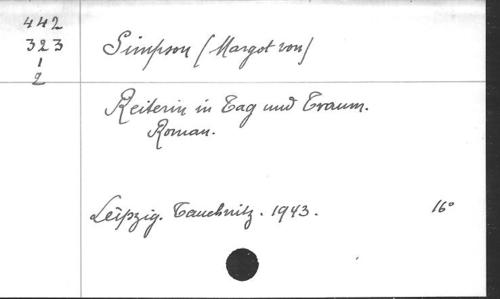 442
323
1
2
Simpson (Margot von)
Reiterin in Tag und Traum.
Roman.
Leipzig. Tauchnitz. 1943. 16°